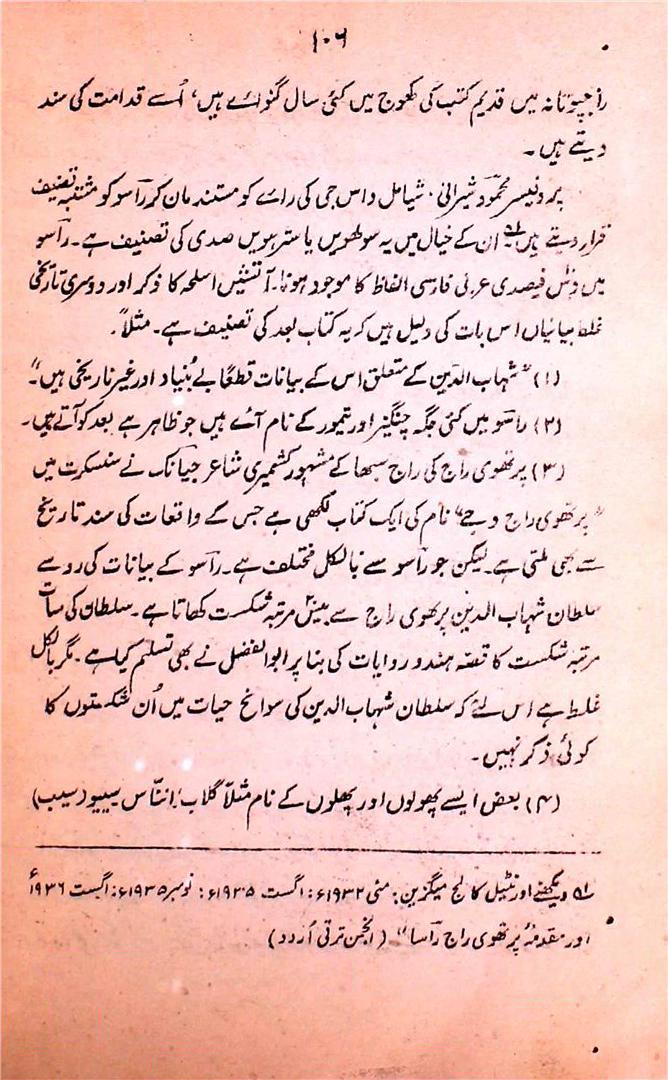 ۱۰۶
راجپوتانہ میں قدیم کتب کی کھوج میں کئی سال گنوائے ہیں، اُسے قدامت کی سند
دیتے ہیں۔
پروفیسر محمود شیرانی، شیامل داس جی کی رائے کو مستند مان کر راسو کو مشتبہ تصنیف
قرار دیتے ہیں۔ ان کے خیال میں یہ سولھویں یا سترہویں صدی کی تصنیف ہے۔ راسو
میں دس فیصدی عربی فارسی الفاظ کا موجود ہونا۔ آتشیں اسلحہ کا ذکر اور دوسری تاریخی
غلط بیانیاں اس بات کی دلیل ہیں کہ یہ کتاب بعد کی تصنیف ہے۔ مثلاً۔
(۱) "شہاب الدین کے متعلق اس کے بیانات قطعاً بے بُنیاد اور غیر تاریخی ہیں"۔
(۲) راسو میں کئی جگہ چنگیز اور تیمور کے نام آئے ہیں جو ظاہر ہے بعد کو آتے ہیں۔
(۳) پرتھوی راج کی راج سبھا کے مشہور کشمیری شاعر جیانک نے سنسکرت میں
"پرتھوی راج وجے" نام کی ایک کتاب لکھی ہے جس کے واقعات کی سند تاریخ
سے بھی ملتی ہے۔ لیکن جو راسو سے بالکل مختلف ہے۔ راسو کے بیانات کی رو سے
سلطان شہاب الدین پرتھوی راج سے بیس مرتبہ شکست کھاتا ہے۔ سلطان کی سات
مرتبہ شکست کا قصہ ہندو روایات کی بنا پر ابوالفضل نے بھی تسلیم کیا ہے۔ مگر بالکل
غلط ہے اس لئے کہ سلطان شہاب الدین کی سوانح حیات میں اُن شکستوں کا
کوئی ذکر نہیں۔
(۴) بعض ایسے پھولوں اور پھلوں کے نام مثلاً گلاب، انناس سیبو (سیب)
؎۱ دیکھئے اورنٹیل کالج میگزین: مئی ۱۹۳۲ء: اگست ۱۹۳۵ء: نومبر ۱۹۳۵ء: اگست ۱۹۳۶ء
اور مقدمۂ پرتھوی راج راسا" (انجمن ترقی اُردو)